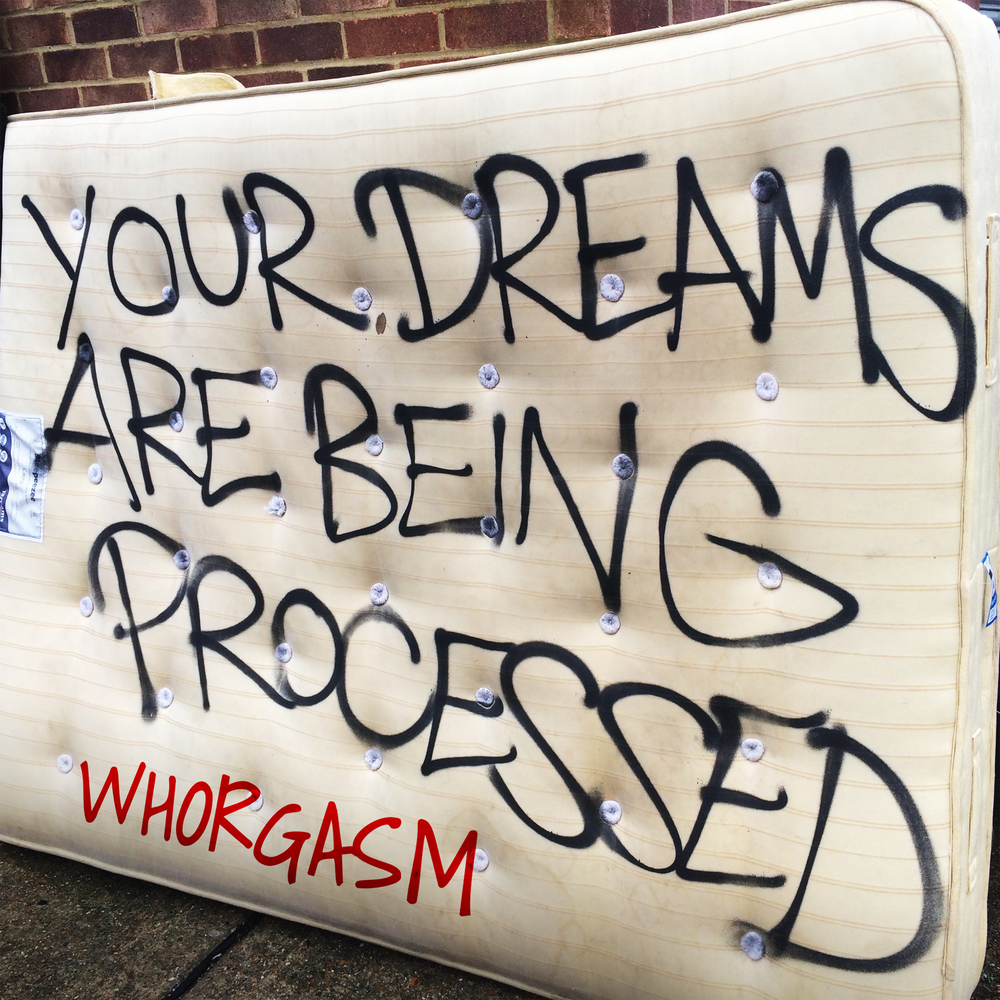 YOUR DREAMS
ARE BEING
PROCESSED
WHORGASM